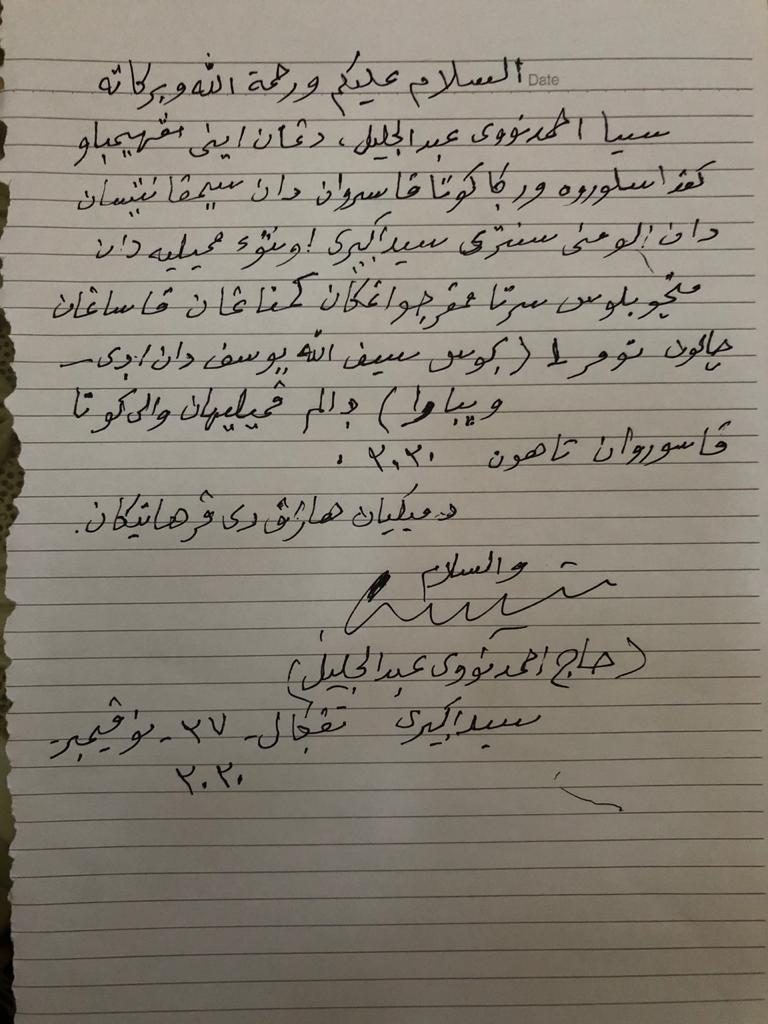 السلام عليكم ورحمة الله وبركاته
Date
سيا احمد نووى عبد الجليل، دڠان اينى مڠهيمباو
كفد اسلوروه ورݢا كوتا ڤاسروان دان سيمڤاتيسان
دان الومنى سنترى سيداݢيرى اونتوء ميليه دان
منچوبلوس سرتا ممڤرجواڠكان كمناڠان ڤاساڠان
چالون نومر ١ (ݢوس سيف الله يوسف دان ادى
ويباوا) دالم ڤميليهان والى كوتا
ڤاسوروان تاهون ٢٠٢٠.
دميكيان هارڤ دى ڤرهاتيكان.
والسلام
(حاج احمد نووى عبد الجليل)
سيداݢيرى تڠݢال - ٢٧ - نوڤيمبر -
٢٠٢٠